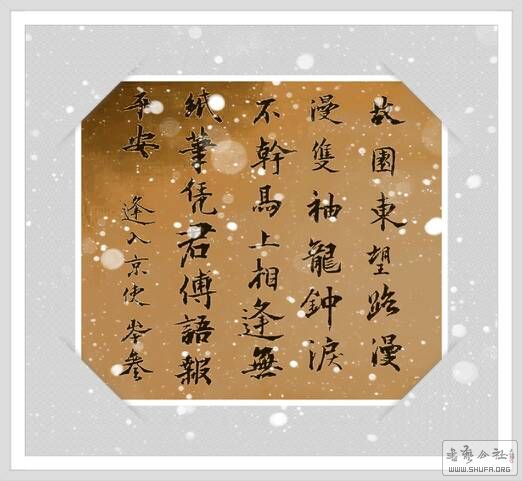 故園東望路漫
漫雙袖龍鐘淚
不幹馬上相逢無
紙筆凭君傳語報
平安 逢入京使 岑參
書藝公社
WWW.SHUFA.ORG